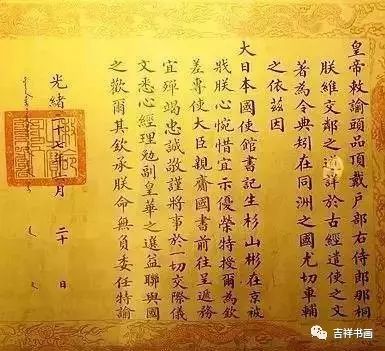 皇帝敕諭頭品頂戴戶部右侍郎那桐
朕維交鄰之道詳於古經遣使之文
著為令典矧在同洲之國尤切車輔
之依茲因
大日本國使館書記生杉山彬在京被
戕朕心惋惜宜示優榮特授爾為欽
差專使大臣親齎國書前往呈遞務
宜殫竭忠誠敬謹將事於一切交際儀
文悉心經理勉副皇華之選益聯與國
之歡爾其欽承朕命無負委任特諭
光緒 十七 月二十日
吉祥书画